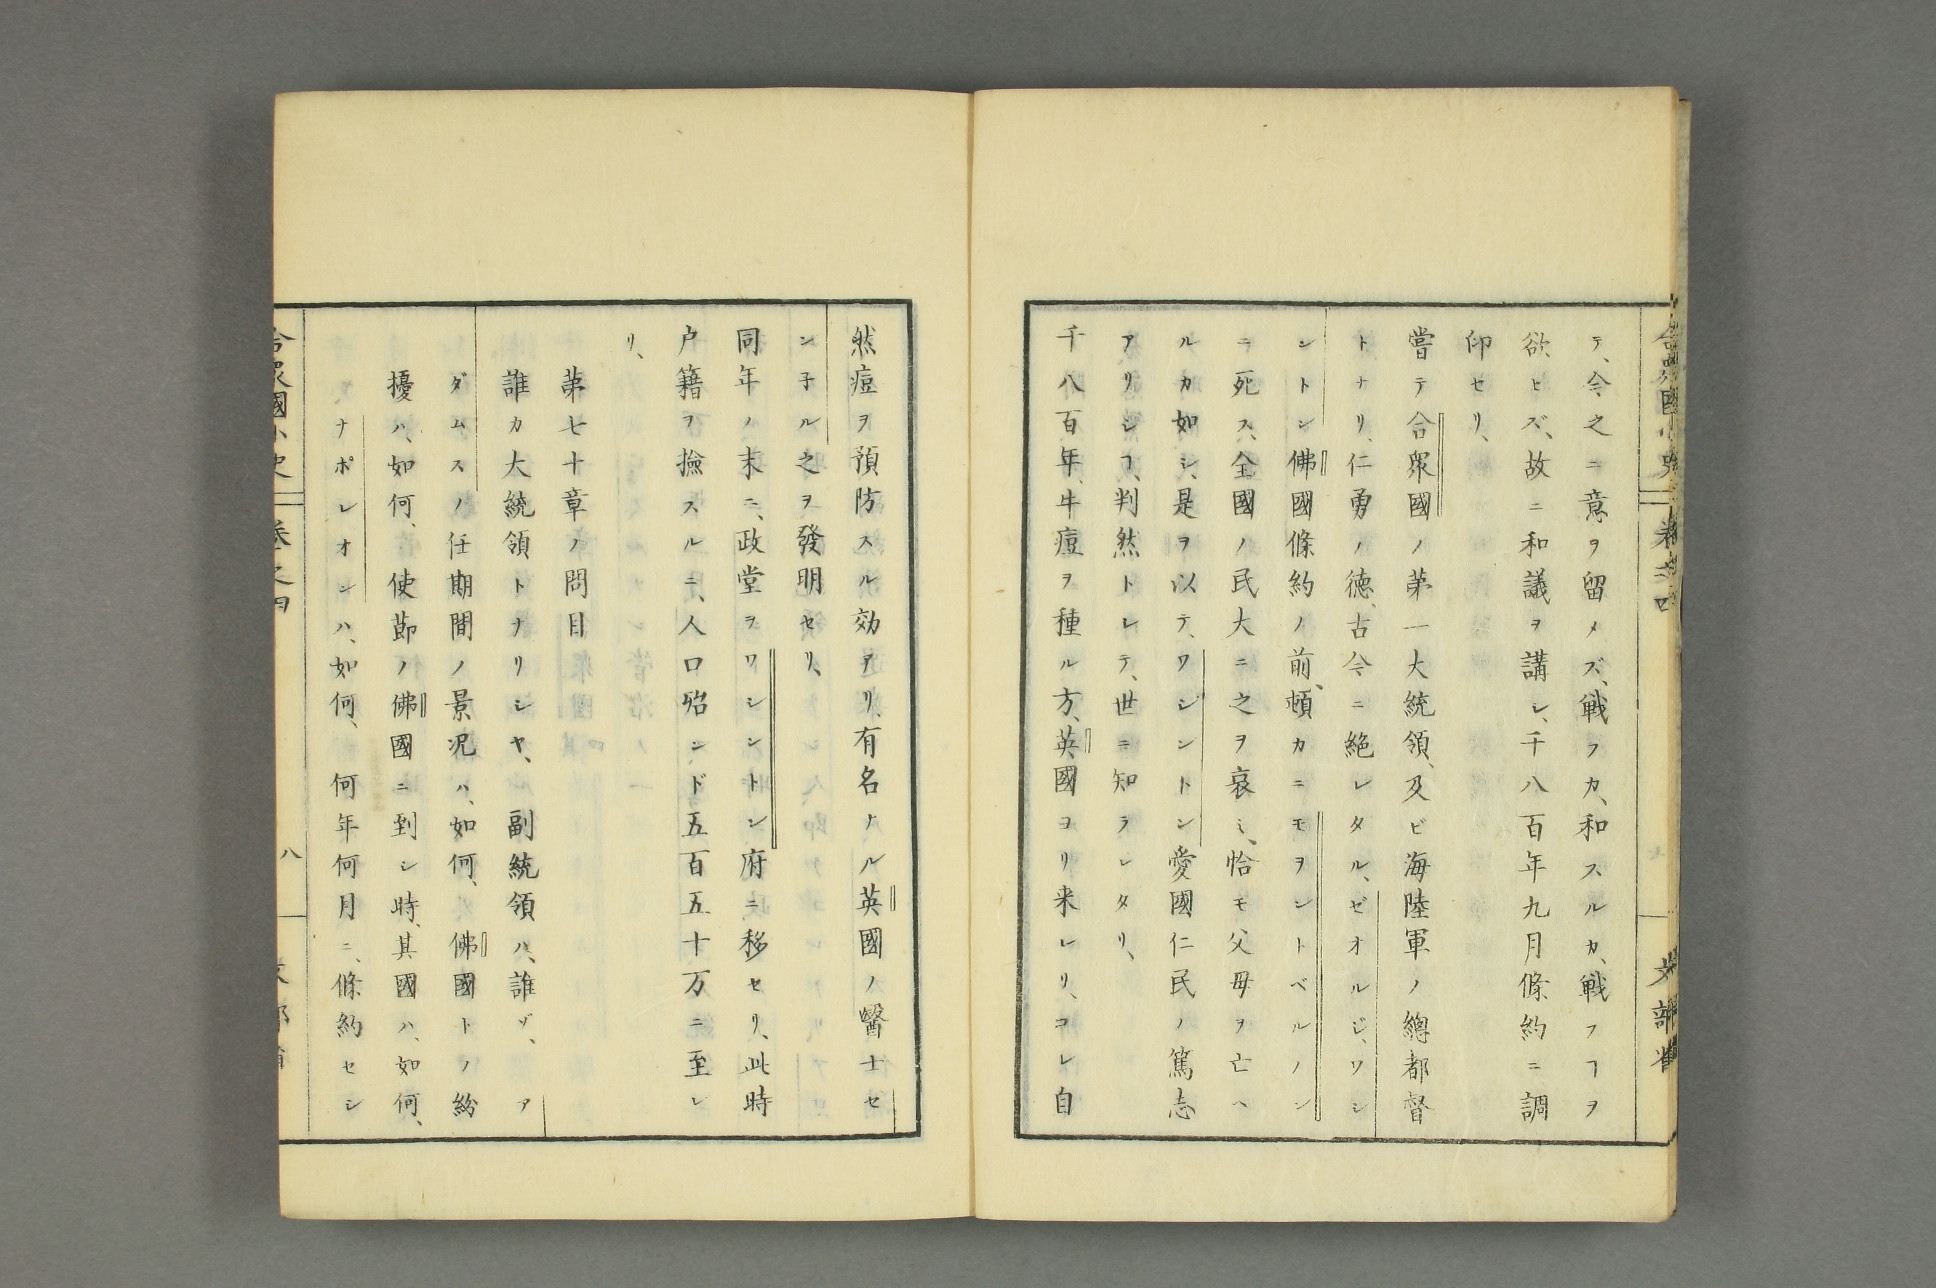 テ、今之ニ意ヲ留メズ、戦フカ、和スルカ、戦フヿヲ
欲ヒズ、故ニ和議ヲ講シ、千八百年九月條約ニ調
印セリ、
嘗テ合衆國ノ第一大統領、及ビ海陸軍ノ總都督
トナリ、仁勇ノ徳、古今ニ絶レタル、ゼオルジ、ワシ
ントン佛國條約ノ前、頓カニモヲントベルノン
ニ死ス、全國ノ民大ニ之ヲ哀ミ、恰モ父母ヲ亡ヘ
ルカ如シ、是ヲ以テ、ワシントン愛國仁民ノ篤志
アリシヿ、判然トレテ、世ニ知ラレタリ、
千八百年、牛痘ヲ種ル方、英國ヨリ来レリ、コレ自
然痘ヲ預防スル効アリ、有名ナル英國ノ醫士セ
ン子ル之ヲ發明セリ、
同年ノ末ニ、政堂ヲワシントン府ニ移セリ、此時
户籍ヲ撿スルニ、人口殆ンド五百五十万ニ至レ
リ、
第七十章ノ問目
誰カ大統領トナリシヤ、副統領ハ、誰ゾ、ア
ダムスノ任期間ノ景況ハ、如何、佛國トノ紛
擾ハ、如何、使節ノ佛國ニ到シ時、其國ハ、如何、
ナポレオンハ、如何、何年何月ニ、條約セシ
合衆國小史 卷之四
八